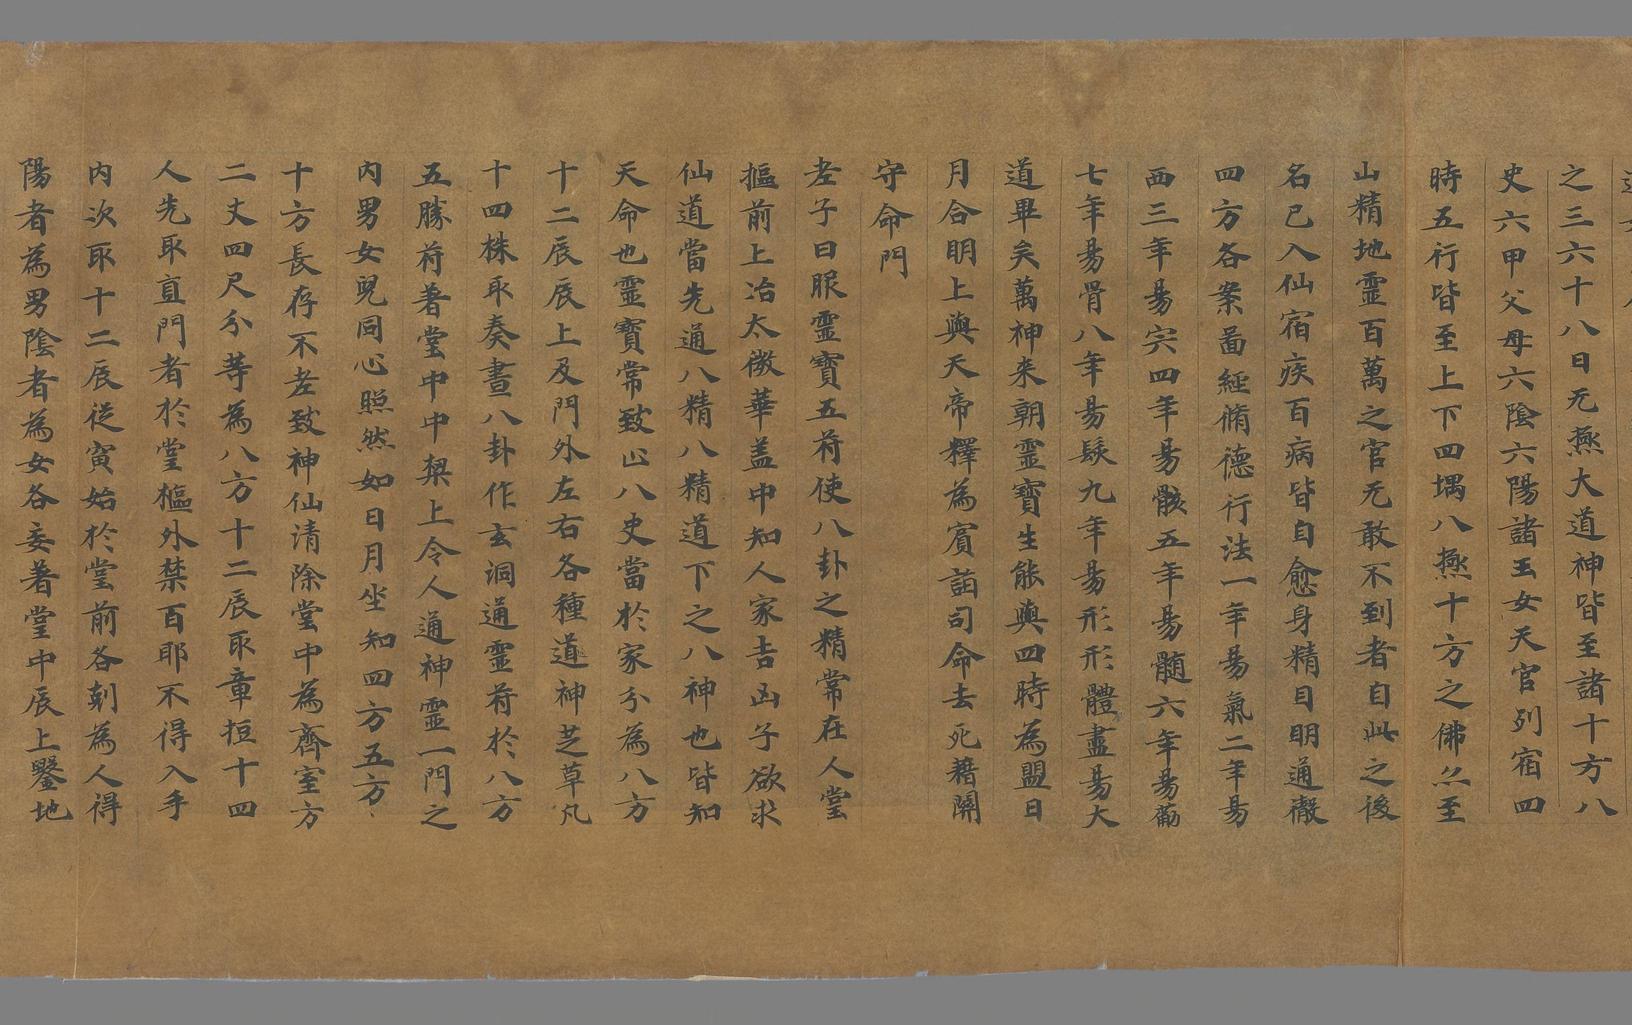 之三六十八日无極大道神皆至諸十方八
史六甲父母六陰六陽諸玉女天官列宿四
時五行皆至上下四堣八極十方之佛尒至
山精地靈百萬之官无敢不到者自此之後
名已入仙宿疾百病皆自愈身精目明通徹
四方各案啚經脩德行法一年昜氣二年昜
血三年昜宍四年昜骸五年昜髓六年昜筋
七年昜骨八年昜髮九年昜形形體盡昜大
道畢矣萬神来朝靈寶生能與四時為盟日
月合明上與天帝釋為賓詣司命去死藉關
守命門
老子曰服靈寶五苻使八卦之精常在人堂
摳前上治太微華盖中知人家吉凶子欲求
仙道當先通八精八精道下之八神也皆知
天命也靈寶常致此八史當於家分為八方
十二辰辰上及門外左右各種道神芝草凡
十四株取奏書八卦作玄洞通靈苻於八方
五勝苻著堂中中梁上令人通神靈一門之
內男女皃同心照然如日月坐知四方五方
十方長存不老致神仙清除堂中為齊室方
二丈四尺分等為八方十二辰取章桓十四
人先取直門者於堂樞外禁百耶不得入手
內次取十二辰從寅始於堂前各刾為人得
陽者為男陰者為女各妾著堂中辰上鑿地